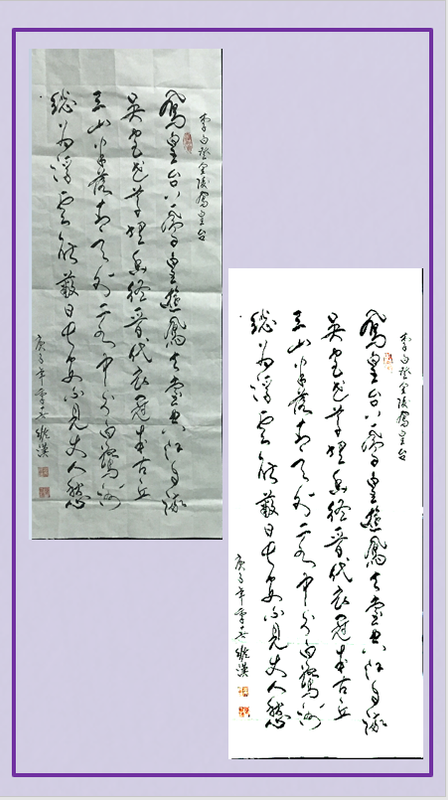 李白登金陵鳳皇台
鳳皇台上鳳皇遊鳳去臺空江自流
吳宮花草埋幽徑晉代衣冠成古丘
三山半落青天外二水中分白鷺洲
總為浮雲能蔽日長安不見使人愁
庚子年
李白登金陵鳳皇台
鳳皇台上鳳皇遊鳳去臺空江自流
吳宮花草埋幽徑晉代衣冠成古丘
三山半落青天外二水中分白鷺洲
總為浮雲能蔽日長安不見使人愁
庚子年